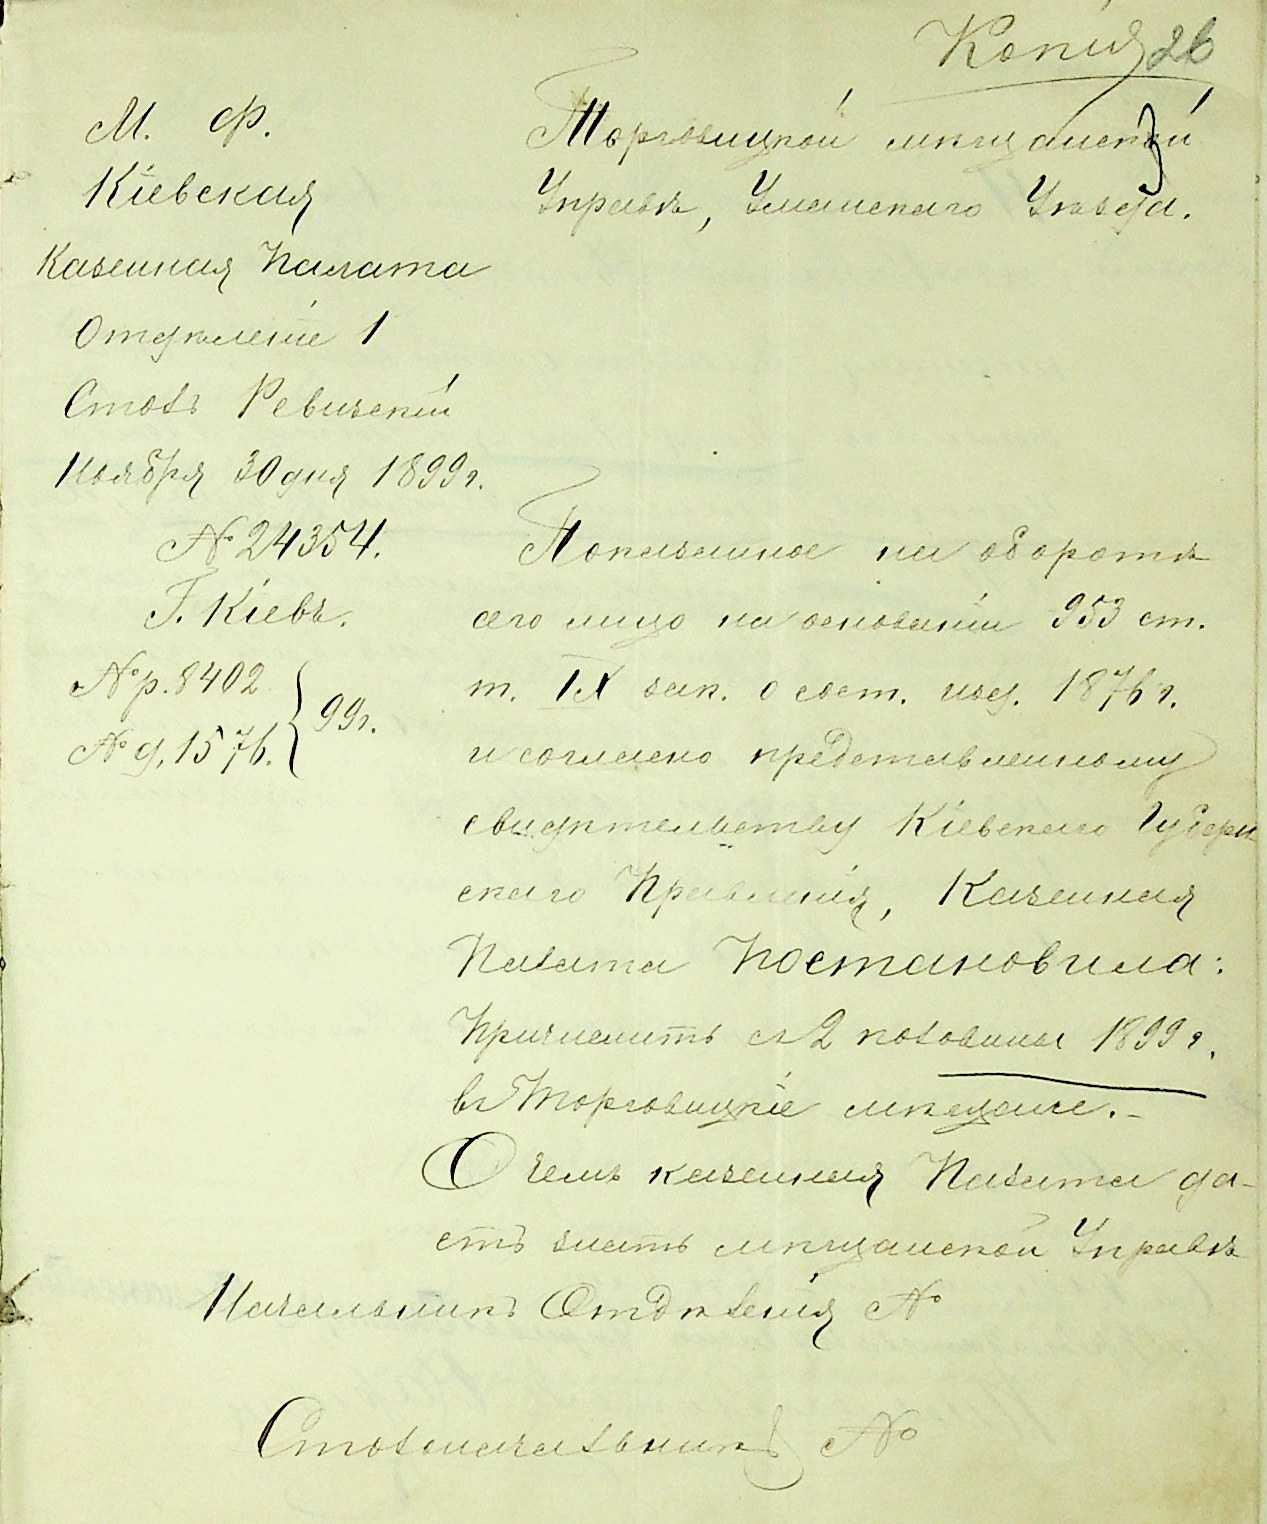 Копия 26
М. Ф.
Кіевская
Казенная Палата
Отдѣленіе 1
Столъ Ревизскій
Ноября 30 дня 1899 г.
№ 24354.
Г. Кіевъ.
№ р. 8402
№ д. 1576. } 99 г.
Торговицкой мѣщанской
Управѣ, Уманскаго Уѣзда.
Показанное на оборотѣ
сего лицо на основаніи 953 ст.
т. IX зак. о сост. изд. 1876 г.
и согласно представленному
свидѣтельству Кіевскаго Губерн
скаго Правленія, Казенная
Палата Постановила:
Причислить съ 2 половины 1899 г.
въ Торговицкіе мѣщане.-
О чемъ казенная Палата да-
етъ знать мѣщанской Управѣ
Начальникъ Отдѣленія №
Столоначальникъ №